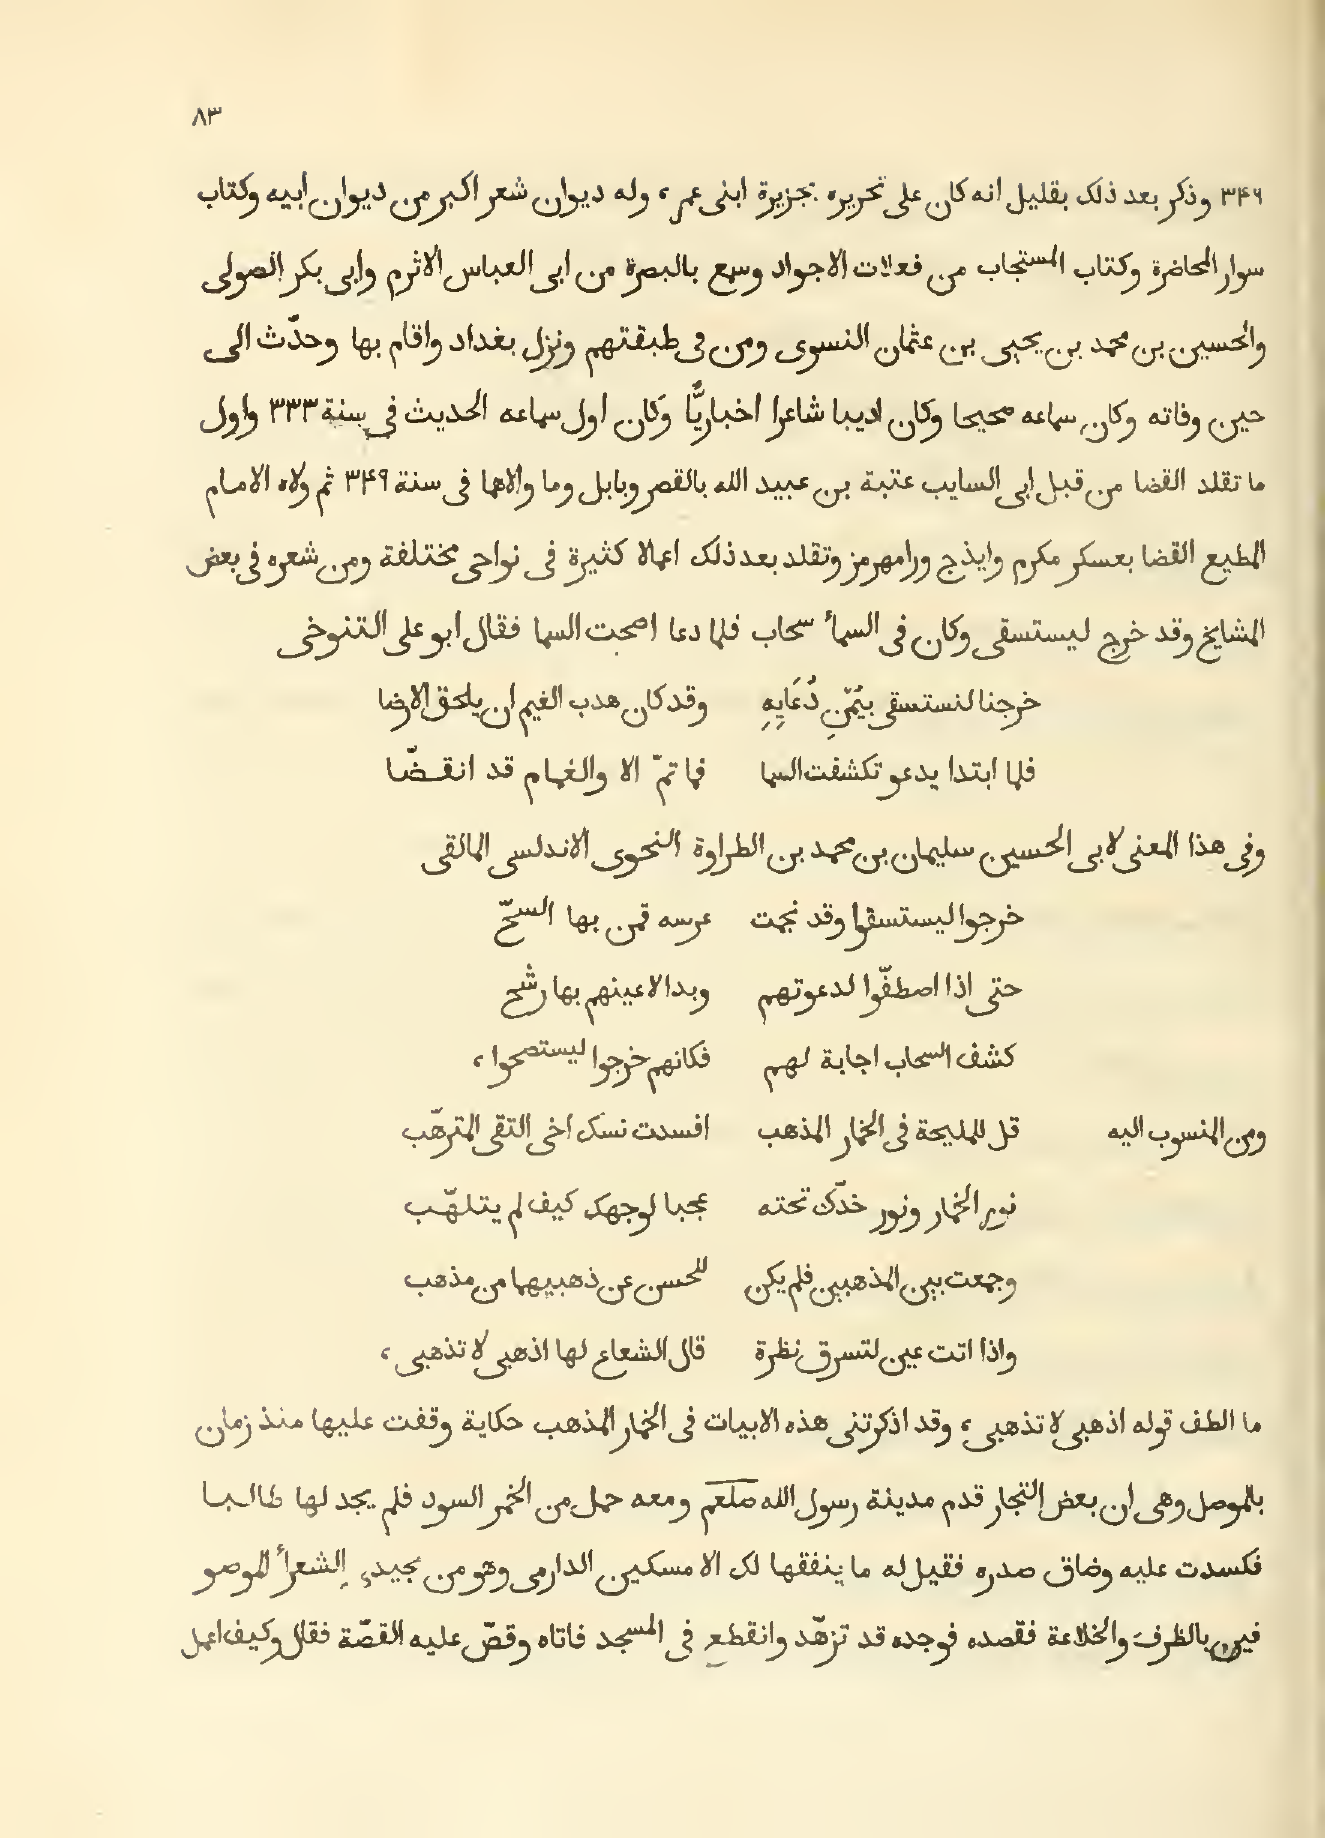 ٨٣
٣٤٦ وذكر بعد ذلك بقليل انه كان على تحريره بجزيرة ابنى عمر، وله ديوان شعر اكبر من ديوان ابيه وكتاب
سوار المحاضرة وكتاب المستجاب من فعلات الاجواد وسمع بالبصرة من ابى العباس الاثرم وابى بكر الصولى
والحسين بن محمد بن يحيى بن عثمان النسوى ومن فى طبقتهم ونزل بغداد واقام بها وحدّث الى
حين وفاته وكان سماعه صحيحا وكان اديبا شاعرا اخباريًّا وكان اول سماعه الحديث فى سنة ٣٣٣ واول
ما تقلد القضا من قبل ابى السايب عتبة بن عبيد الله بالقصر وبابل وما والاها فى سنة ٣٤٩ ثم ولاه الامام
المطيع القضا بعسكر مكرم وايذج ورامهرمز وتقلد بعد ذلك اعمالا كثيرة فى نواحى مختلفة ومن شعره فى بعض
المشايخ وقد خرج ليستسقى وكان فى السمأ سحاب فلما دعا اصحت السما فقال ابو على التنوخى
خرجنا لنستسقى بيُمْنِ دُعَايِهِ وقد كان هدب الغيم ان يلحق الارضا
فلما ابتدا يدعو تكشفت السما فما تمّ الا والغمام قد انقضّا
وفى هذا المعنى لابى الحسين سليمان بن محمد بن الطراوة النحوى الاندلسى المالقى
خرجوا ليستسقوا وقد نجمت عرسه قمن بها السحّ
حتى اذا اصطفّوا لدعوتهم وبدا لاعينهم بها رشح
كشف السحاب اجابة لهم فكانهم خرجوا ليستصحوا،
ومن المنسوب اليه قل للمليحة فى الخمار المذهب افسدت نسك اخى التقى المترهّب
نور الخمار ونور خدّك تحته عجبا لوجهك كيف لم يتلهّب
وجمعت بين المذهبين فلم يكن للحسن عن ذهبيهما من مذهب
واذا اتت عين لتسرق نظرة قال الشعاع لها اذهبى لا تذهبى،
ما الطف قوله اذهبى لا تذهبى، وقد اذكرتنى هذه الابيات فى الخمار المذهب حكاية وقفت عليها منذ زمان
بالموصل وهى ان بعض التجار قدم مدينة رسول الله صلعم ومعه حمل من الخمر السود فلم يجد لها طالبا
فكسدت عليه وضاق صدره فقيل له ما ينفقها لك الا مسكين الدارمى وهو من مجيدى الشعرأ الموصو
فين بالظرف والخلاعة فقصده فوجده قد تزهّد وانقطع فى المسجد فاتاه وقصّ عليه القصّة فقال وكيف اعمل